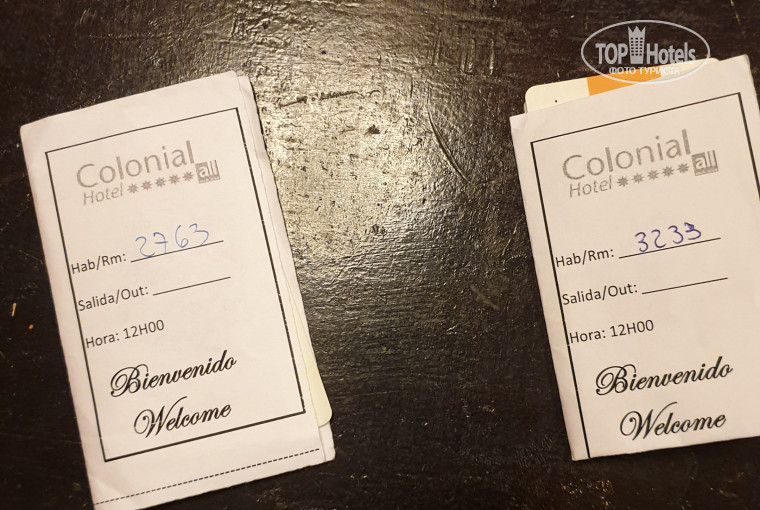 TOP Hotels
ФОТО ТУРИСТА
Colonial
Hotel ***** all
Hab/Rm: 2763
Salida/Out: ________
Hora: 12H00
Bienvenido
Welcome
Colonial
Hotel ***** all
Hab/Rm: 3233
Salida/Out: ________
Hora: 12H00
Bienvenido
Welcome